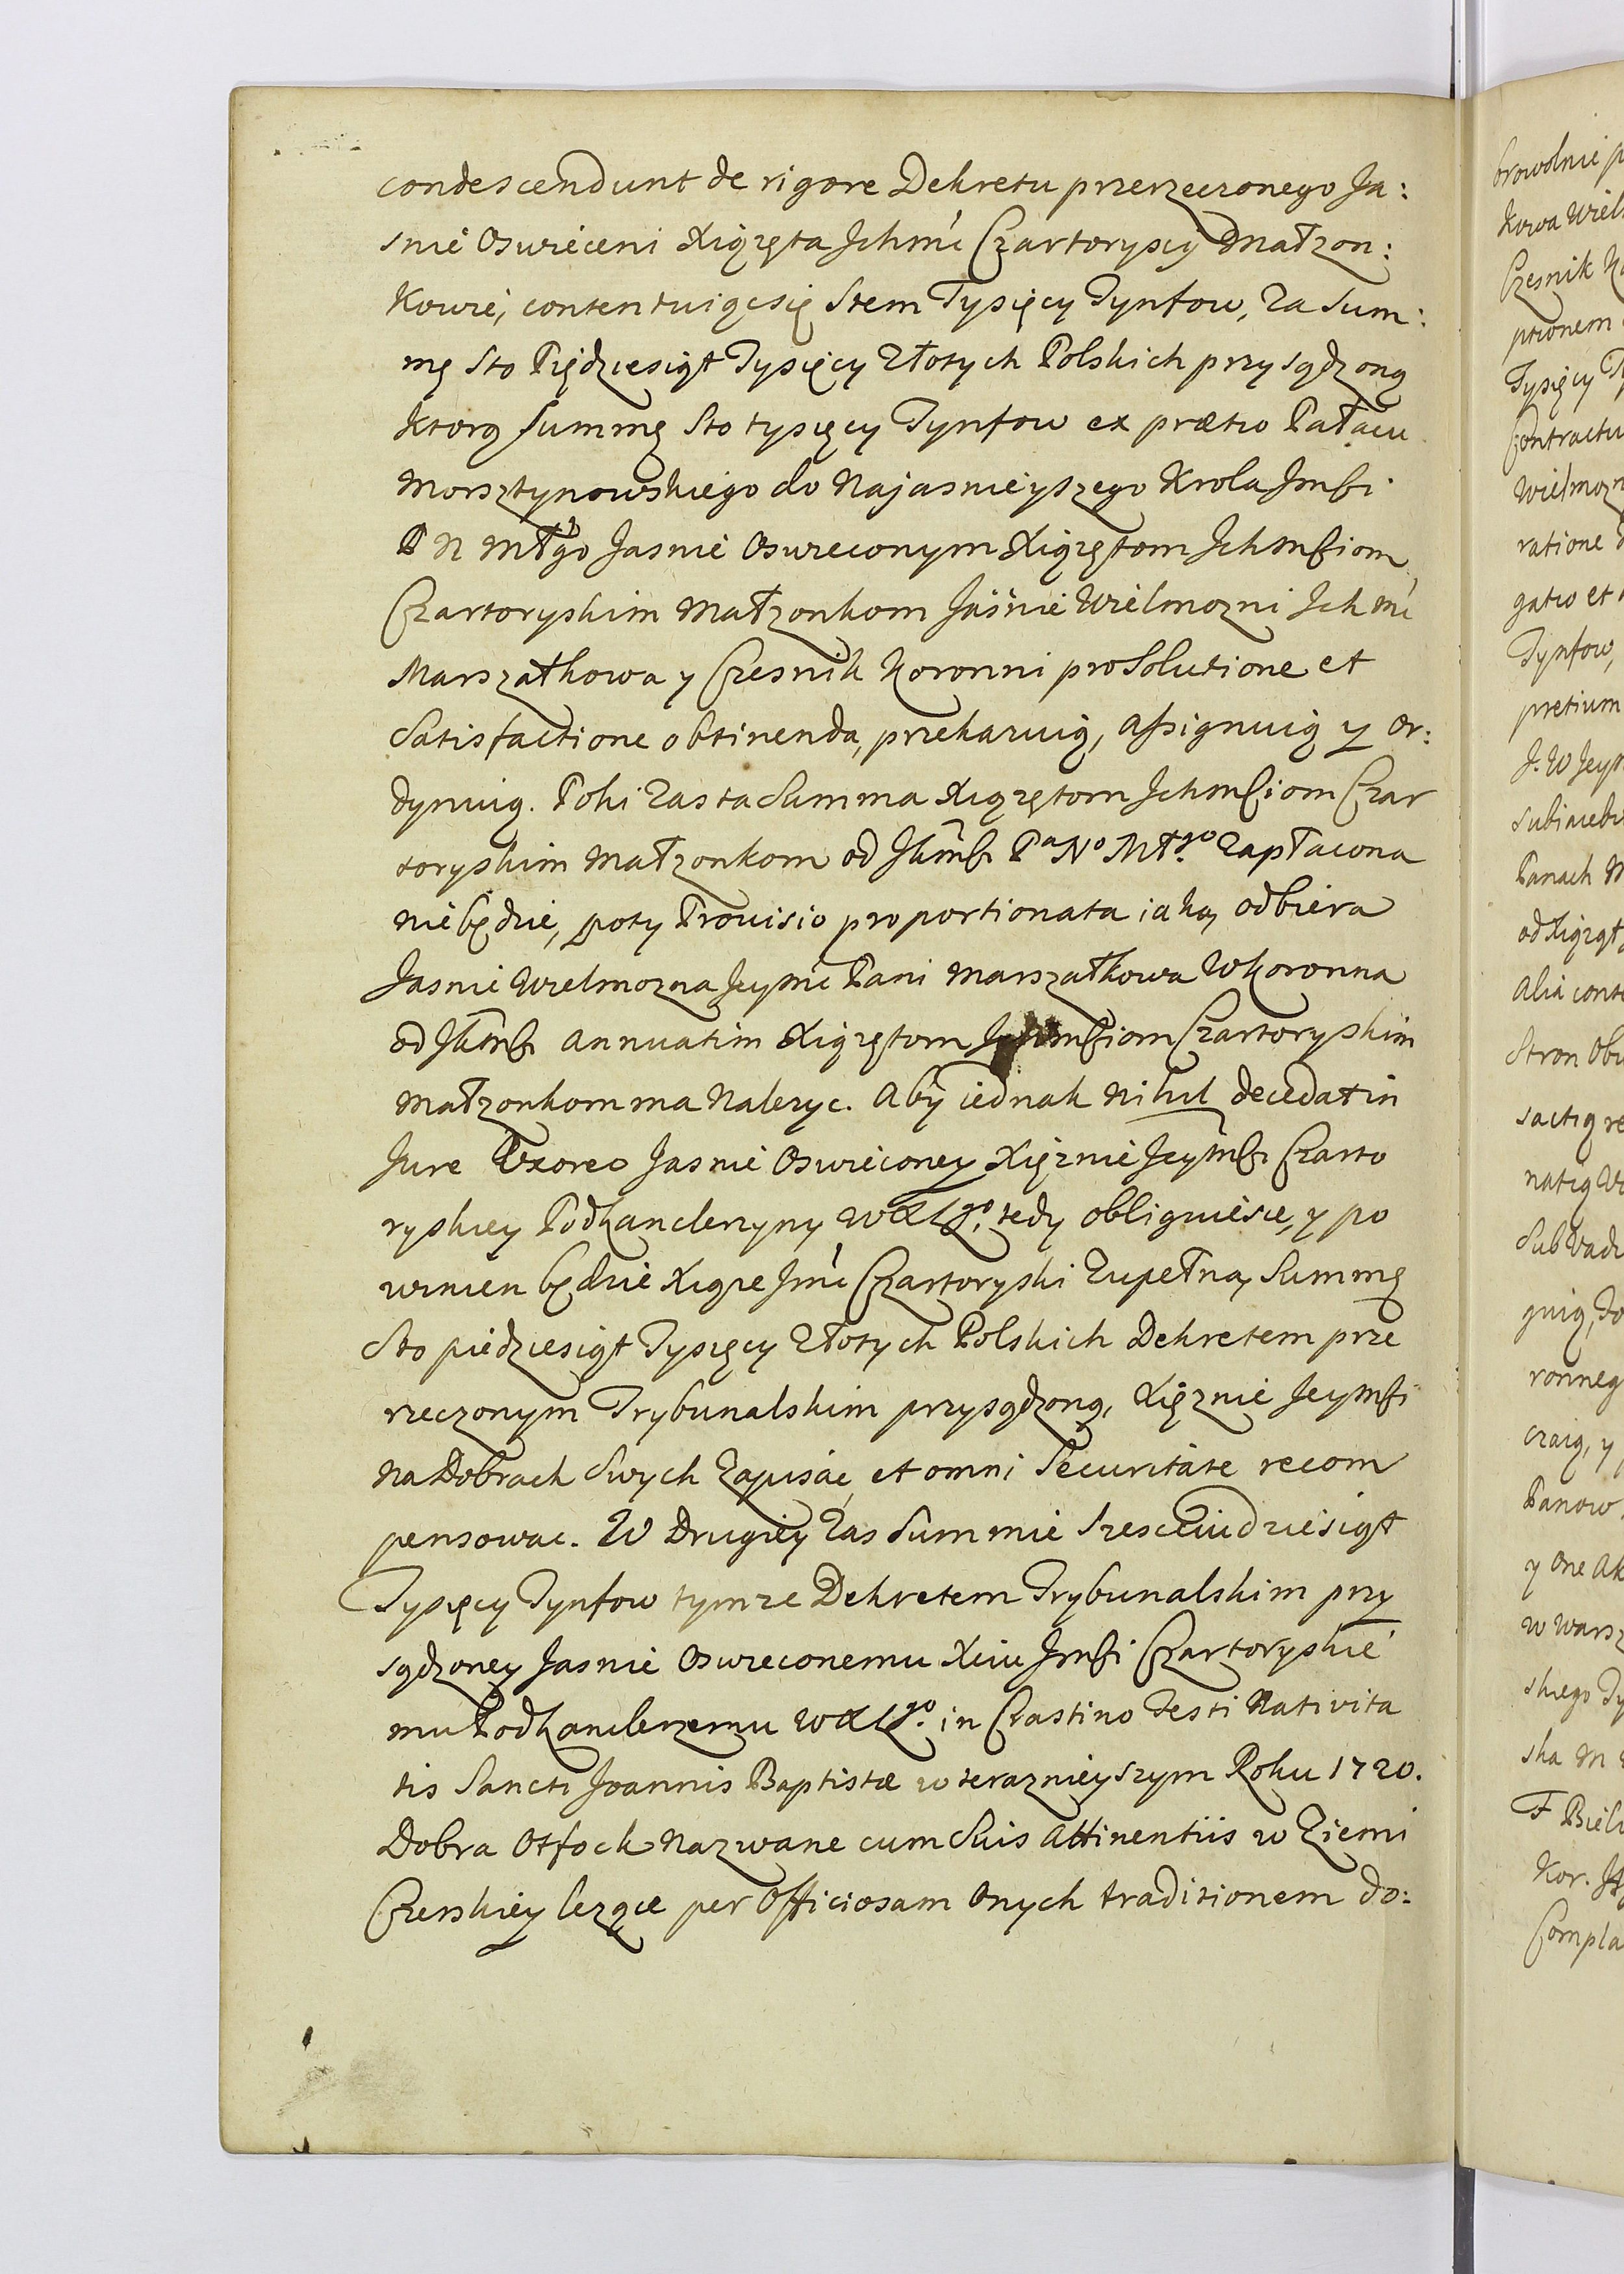 condescendunt de rigore Dekretu przerzeczonego Ja:
snie Oswieceni Xiążęta Jchmć Czartoryscy Małzon:
Kowie, contentuiąc się Stem Tysięcy Tynfow, za Sum:
mę Sto Pięcdziesiąt Tysięcy Złotych Polskich przysądzoną
Ktorą Summę Sto tysięcy Tynfow ex prætio Pałacu
Morsztynowskiego do Najasnieyszego Krola Jmści
P N Młgo Jasnie Oswieconym Xiążętom Jchmściom
Czartoryskim Małzonkom Jaśnie Wielmozni Jchmć
Marszałkowa y Czesnik Koronni pro Solutione et
Satisfactione obtinenda, przekazuią, assignuią y or:
dynuią. Poki zas ta Summa Xiążętom Jchmściom Czar
toryskim Małzonkom od JKmści Pa No Młgo zapłacona
niebędzie, poty Provisio proportionata iaką odbiera
Jasnie Wielmozna Jeymć Pani Marszałkowa WKoronna
od JKmści annuatim Xiążętom Jchmściom Czartoryskim
Małzonkom ma nalezyc. Aby iednak nihil decedat in
Jure Uxoreo Jasnie Oswieconey Xiężnie Jeymści Czarto
ryskiey Podkanclerzyny WXLgo. tedy obliguie się, y po
winien będzie Xiąze Jmć Czartoryski zupełną Summę
Sto piędziesiąt Tysięcy Złotych Polskich Dekretem prze
rzeczonym Trybunalskim przysądzoną, Xiężnie Jeymści
na Dobrach Swych zapisać, et omni Securitate recom
pensowac. W Drugiey zas Summie Szescciudziesiąt
Tysięcy Tynfow tymze Dekretem Trybunalskim przy
sądzoney Jasnie Oswieconemu Xciu Jmści Czartoryskie
mu Podkanclerzemu WXLgo. in Crastino Festi Nativita
tis Sancti Joannis Baptistæ w teraznieyszym Roku 1720.
Dobra Otfock nazwane cum Suis Attinentiis w Ziemi
Czerskiey lezące per Officiosam Onych traditionem do: